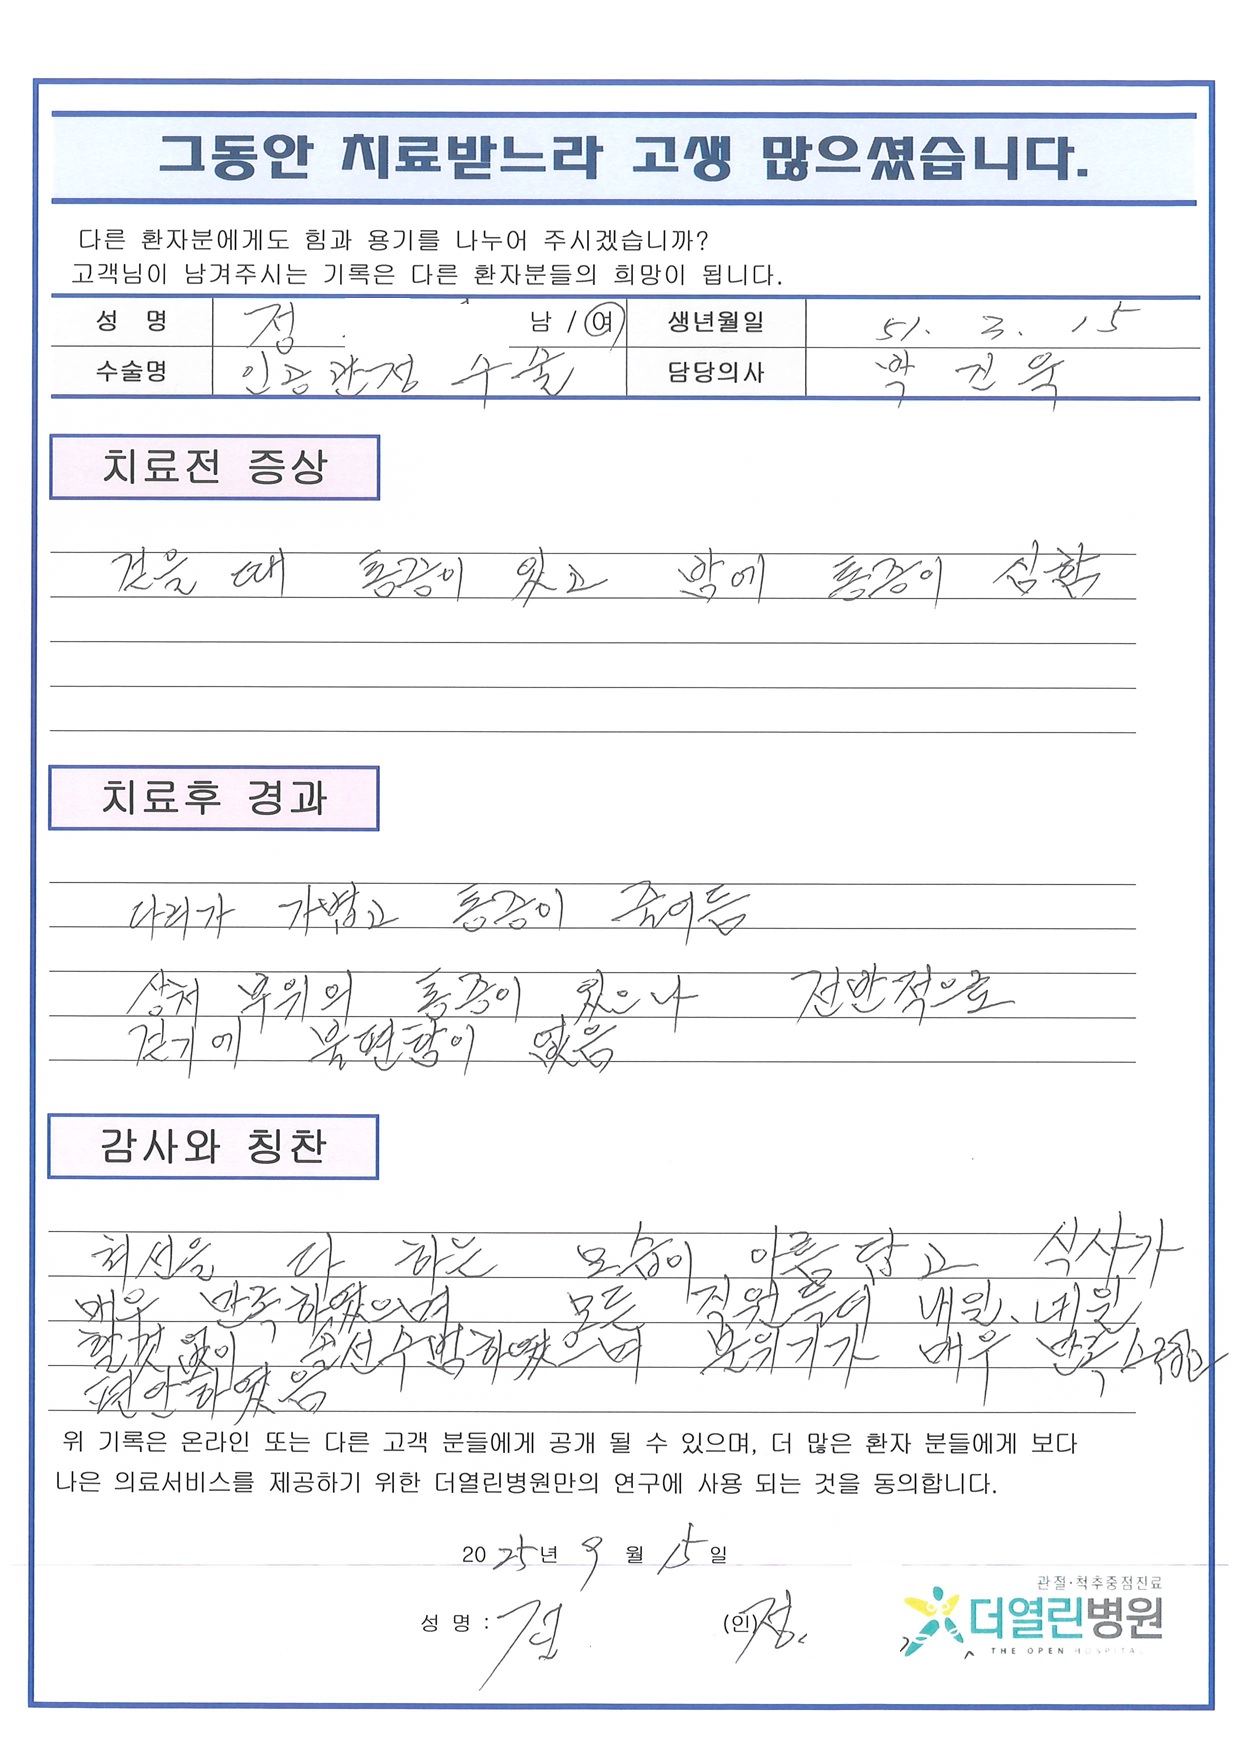 그동안 치료받느라 고생 많으셨습니다.
다른 환자분에게도 힘과 용기를 나누어 주시겠습니까?
고객님이 남겨주시는 기록은 다른 환자분들의 희망이 됩니다.
성 명 정 남 / 여 생년월일 51. 3. 15
수술명 인공관절 수술 담당의사 박진욱
치료전 증상
걷을 때 통증이 있고 밤에 통증이 심함
치료후 경과
다리가 가볍고 통증이 줄어듬
상처 부위의 통증이 있으나 전반적으로
걷기에 불편함이 없음
감사와 칭찬
최선을 다 하는 모습이 아름답고 식사가
매우 만족하였으며 모든 직원들이
할것 없이 솔선수범하였으며 분위기가 매우 만족스럽고
편안하였음
위 기록은 온라인 또는 다른 고객 분들에게 공개 될 수 있으며, 더 많은 환자 분들에게 보다
나은 의료서비스를 제공하기 위한 더열린병원만의 연구에 사용 되는 것을 동의합니다.
2025년 9월 15일
성 명 : 정 (인) 정
관절·척추중점진료
더열린병원
THE OPEN HOSPITAL